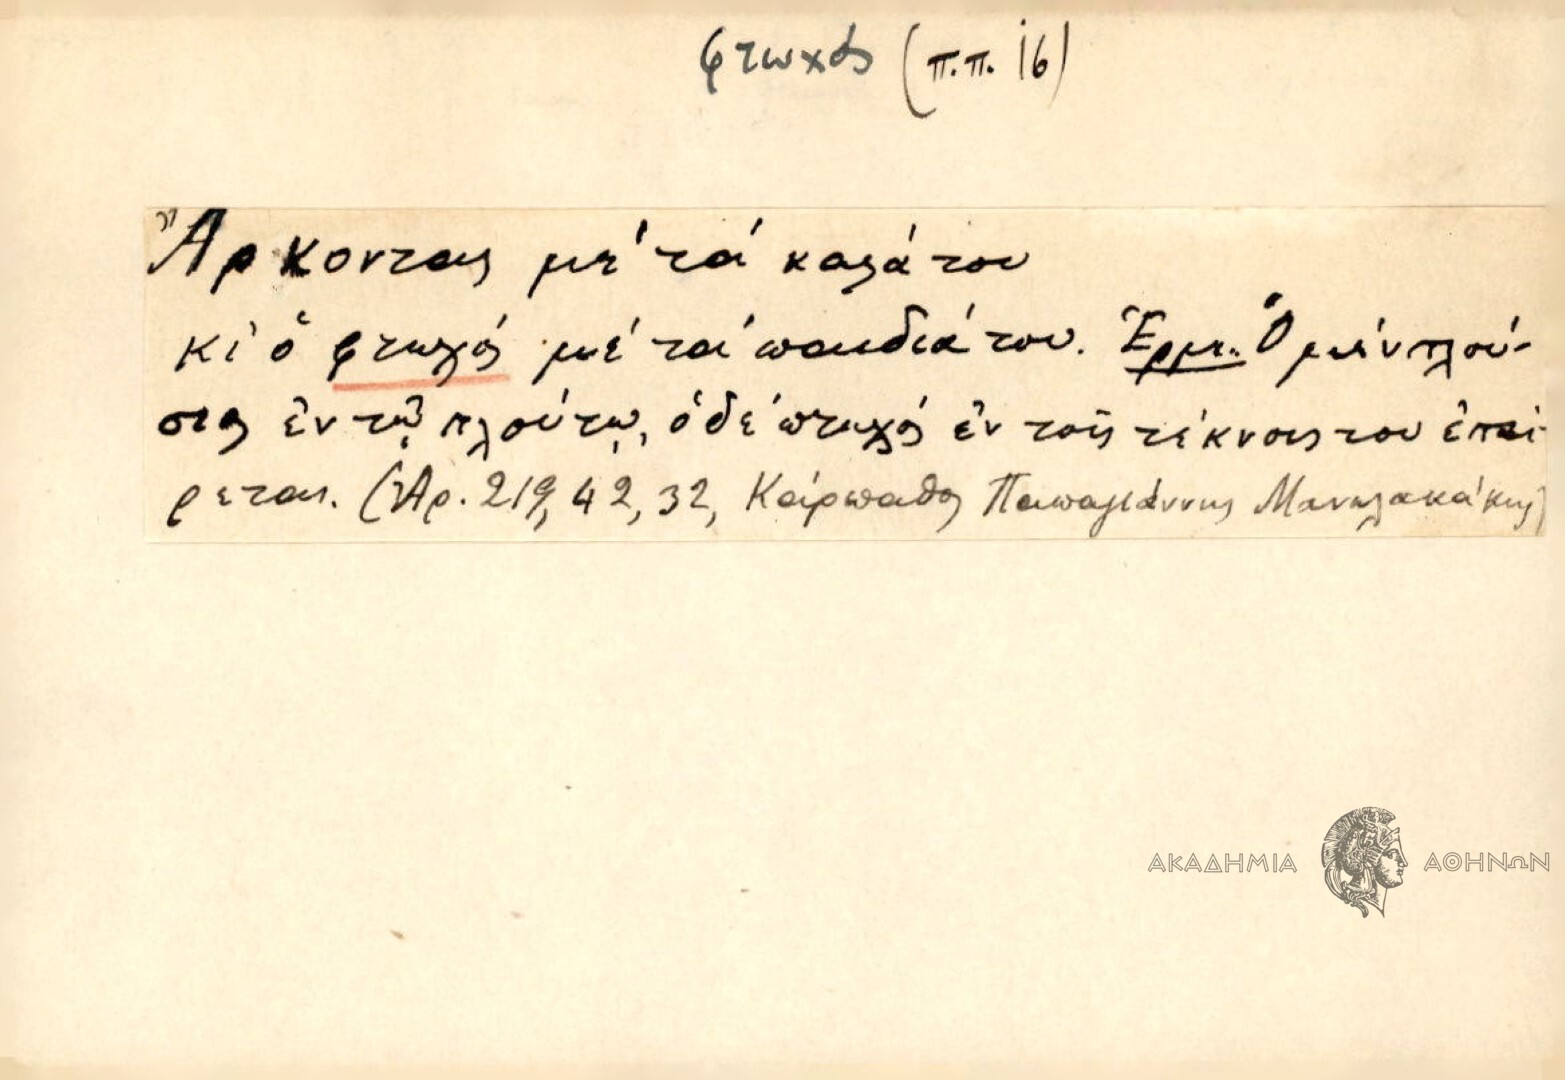 φτωχός (π.π. 16)
Ἄρκοντας μέ τά καλά του
κι' ὁ φτωχός μέ τά παιδιά του. Ἑρμ. Ὁ μέν πλού-
σιος ἐν τῷ πλούτῳ, ὁ δέ πτωχός ἐν τοῖς τέκνοις του ἐπαί-
ρεται. (Ἀρ. 219, 42, 32, Κάρπαθος Παπαγιάννης Μανωλακάκης)
ΑΚΑΔΗΜΙΑ ΑΘΗΝΩΝ